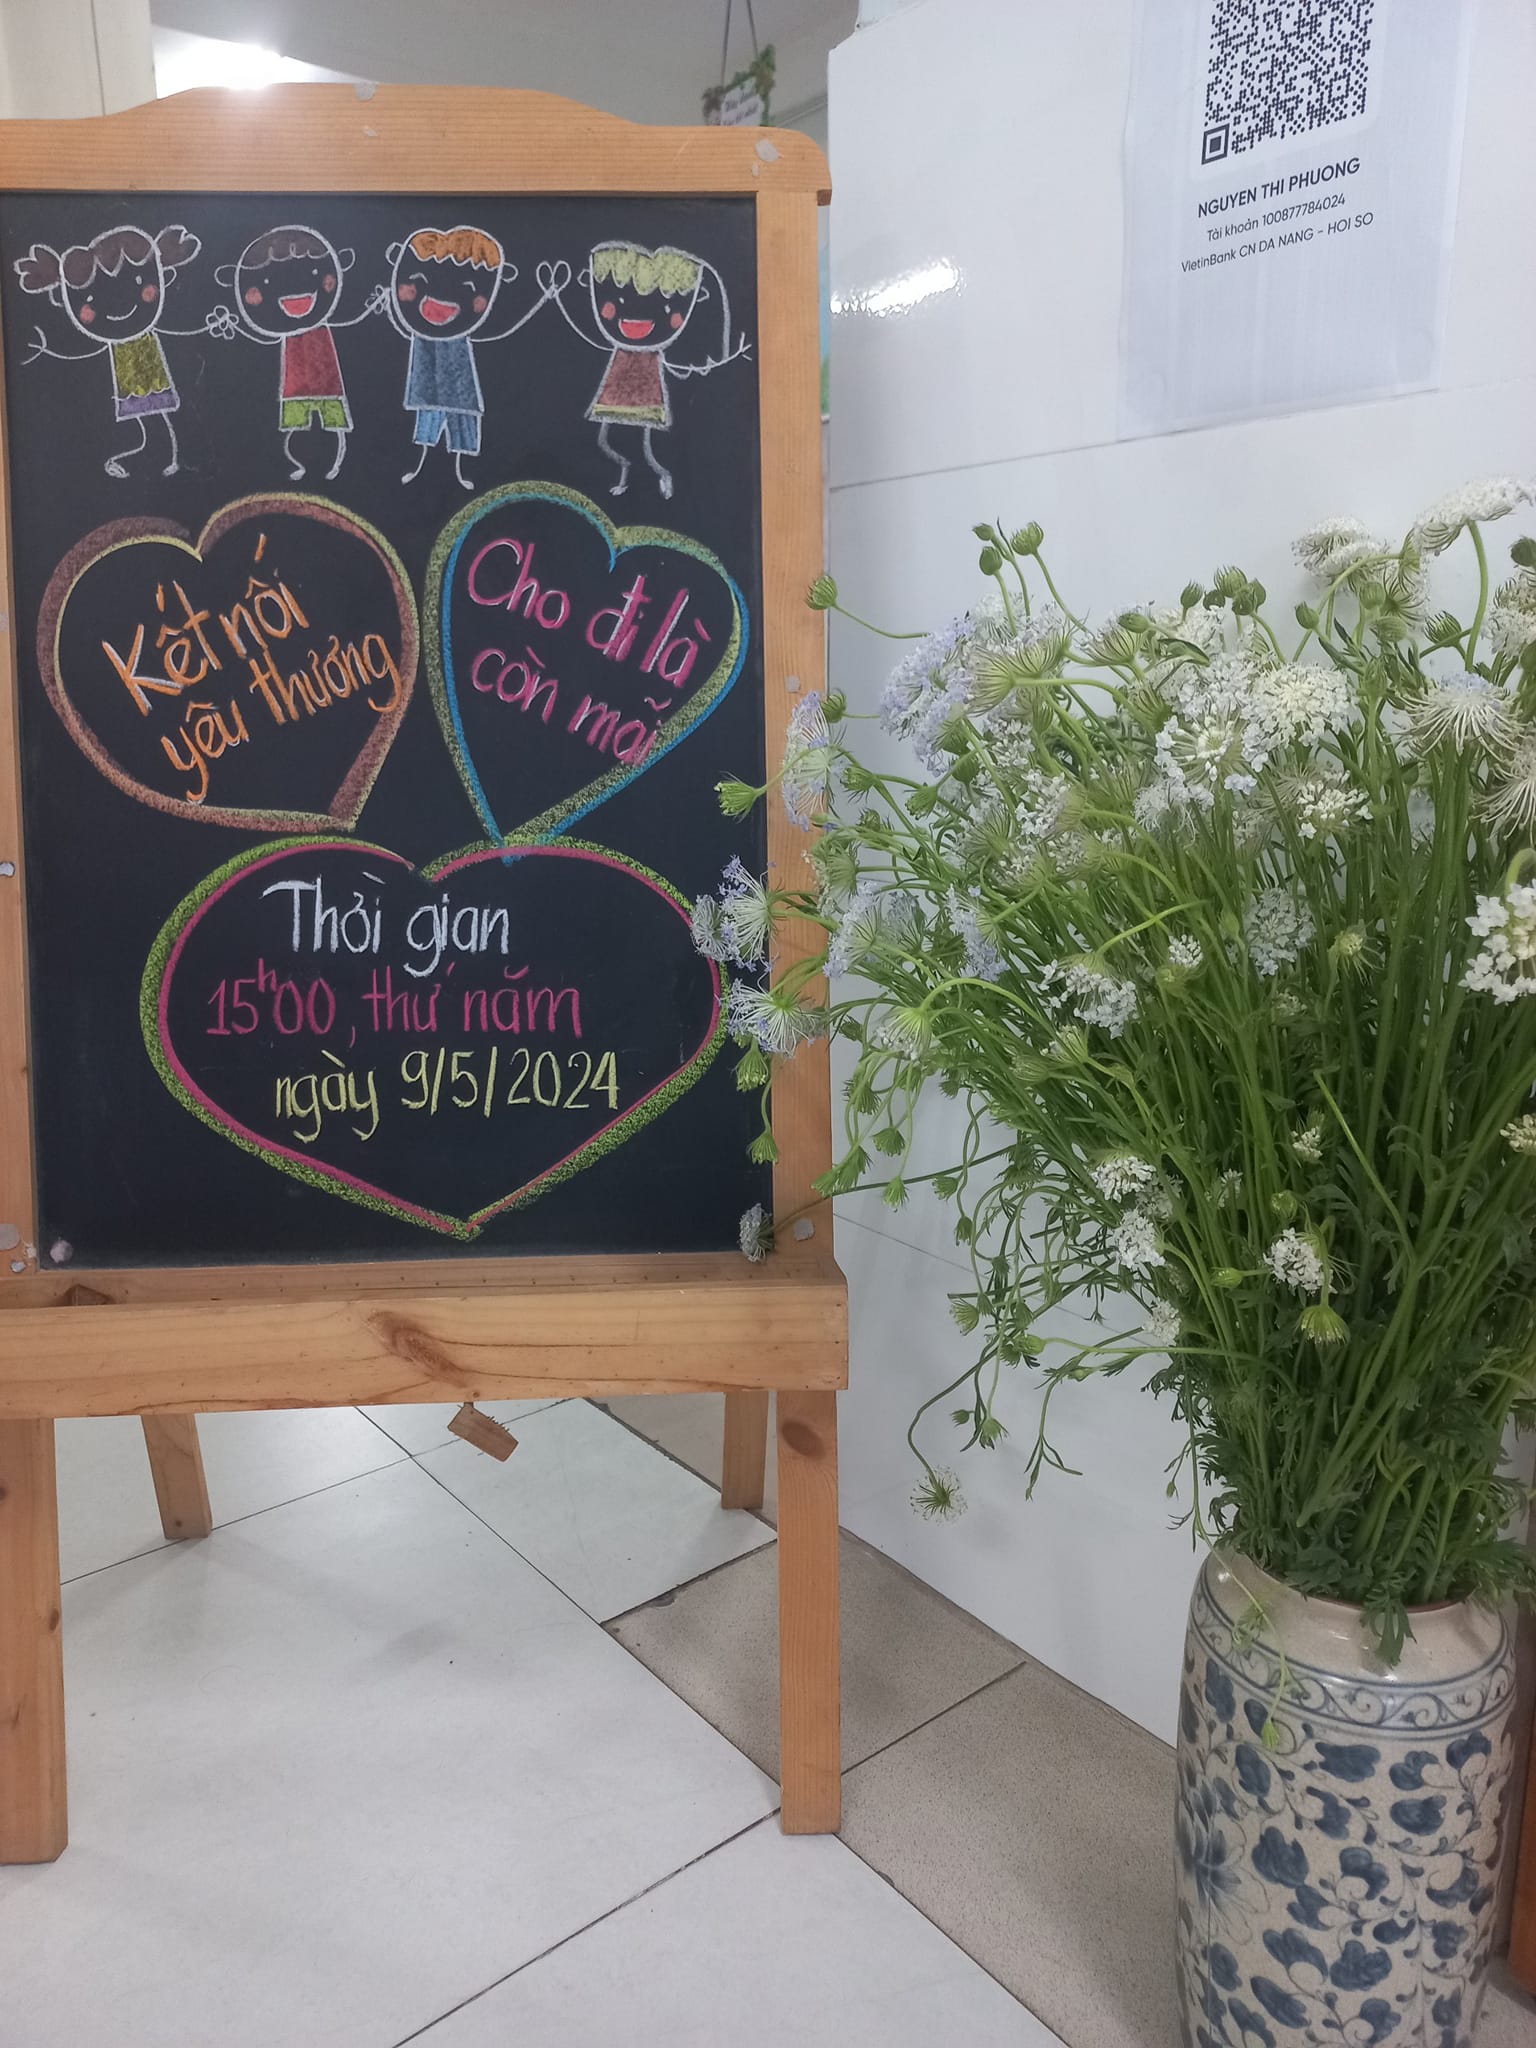 Kết nối
yêu thương
Cho đi là
còn mãi
Thời gian
15h00, thứ năm
ngày 9/5/2024
NGUYEN THI PHUONG
Tài khoản 100877784024
VietinBank CN DA NANG - HOI SO